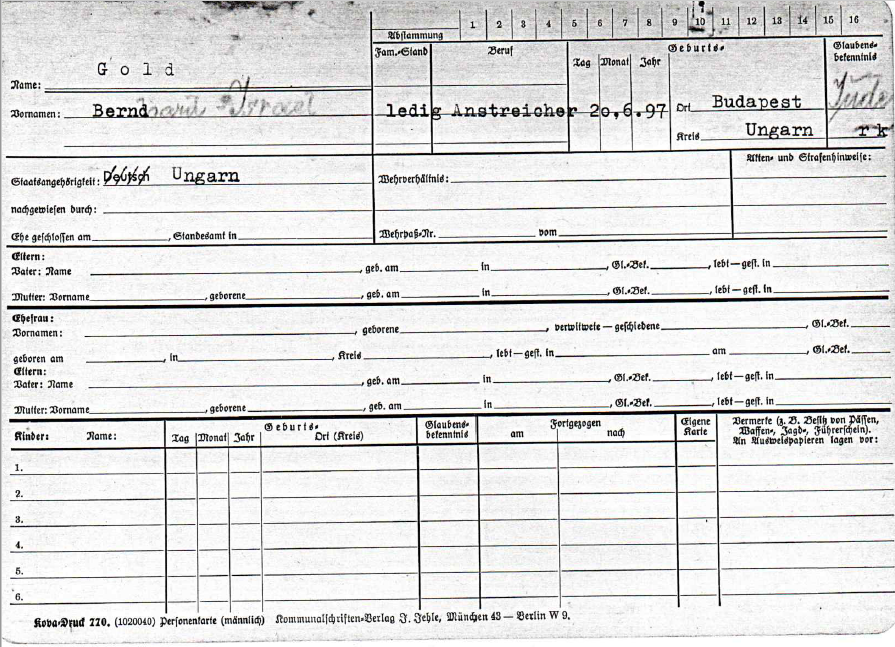 Abstammung 1 2 3 4 5 6 7 8 9 10 11 12 13 14 15 16
Name: Gold
Vornamen: Bernd hard Israel
Fam.-Stand Beruf Geburts- Glaubens-
Tag Monat Jahr bekenntnis
ledig Anstreicher 20.6.97 Ort Budapest Jude
Kreis Ungarn rk
Staatsangehörigkeit: Deutsch Ungarn
nachgewiesen durch:
Ehe geschlossen am , Standesamt in
Wehrverhältnis:
Wehrpaß-Nr. vom
Akten- und Strafenhinweise:
Eltern:
Vater: Name , geb. am in , Gl.-Bek. , lebt—gest. in
Mutter: Vorname , geborene , geb. am in , Gl.-Bek. , lebt—gest. in
Ehefrau:
Vornamen: , geborene , verwitwete — geschiedene , Gl.-Bek.
geboren am , in , Kreis , lebt—gest. in am , Gl.-Bek.
Eltern:
Vater: Name , geb. am in , Gl.-Bek. , lebt—gest. in
Mutter: Vorname , geborene , geb. am in , Gl.-Bek. , lebt—gest. in
Kinder: Name: Geburts- Glaubens- Fortgezogen Eigene Vermerke (z. B. Besitz von Pässen,
Tag Monat Jahr Ort (Kreis) bekenntnis am nach Karte Waffen-, Jagd-, Führerschein).
An Ausweispapieren lagen vor:
1.
2.
3.
4.
5.
6.
Kova-Druck 770. (1020040) Personenkarte (männlich) Kommunalschriften-Verlag J. Jehle, München 43 — Berlin W 9.